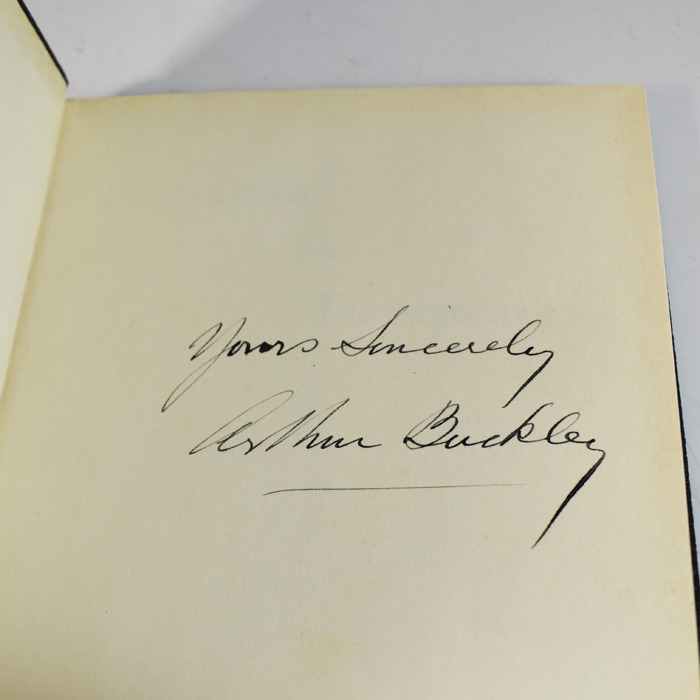 Yours Sincerely
Arthur Buckley